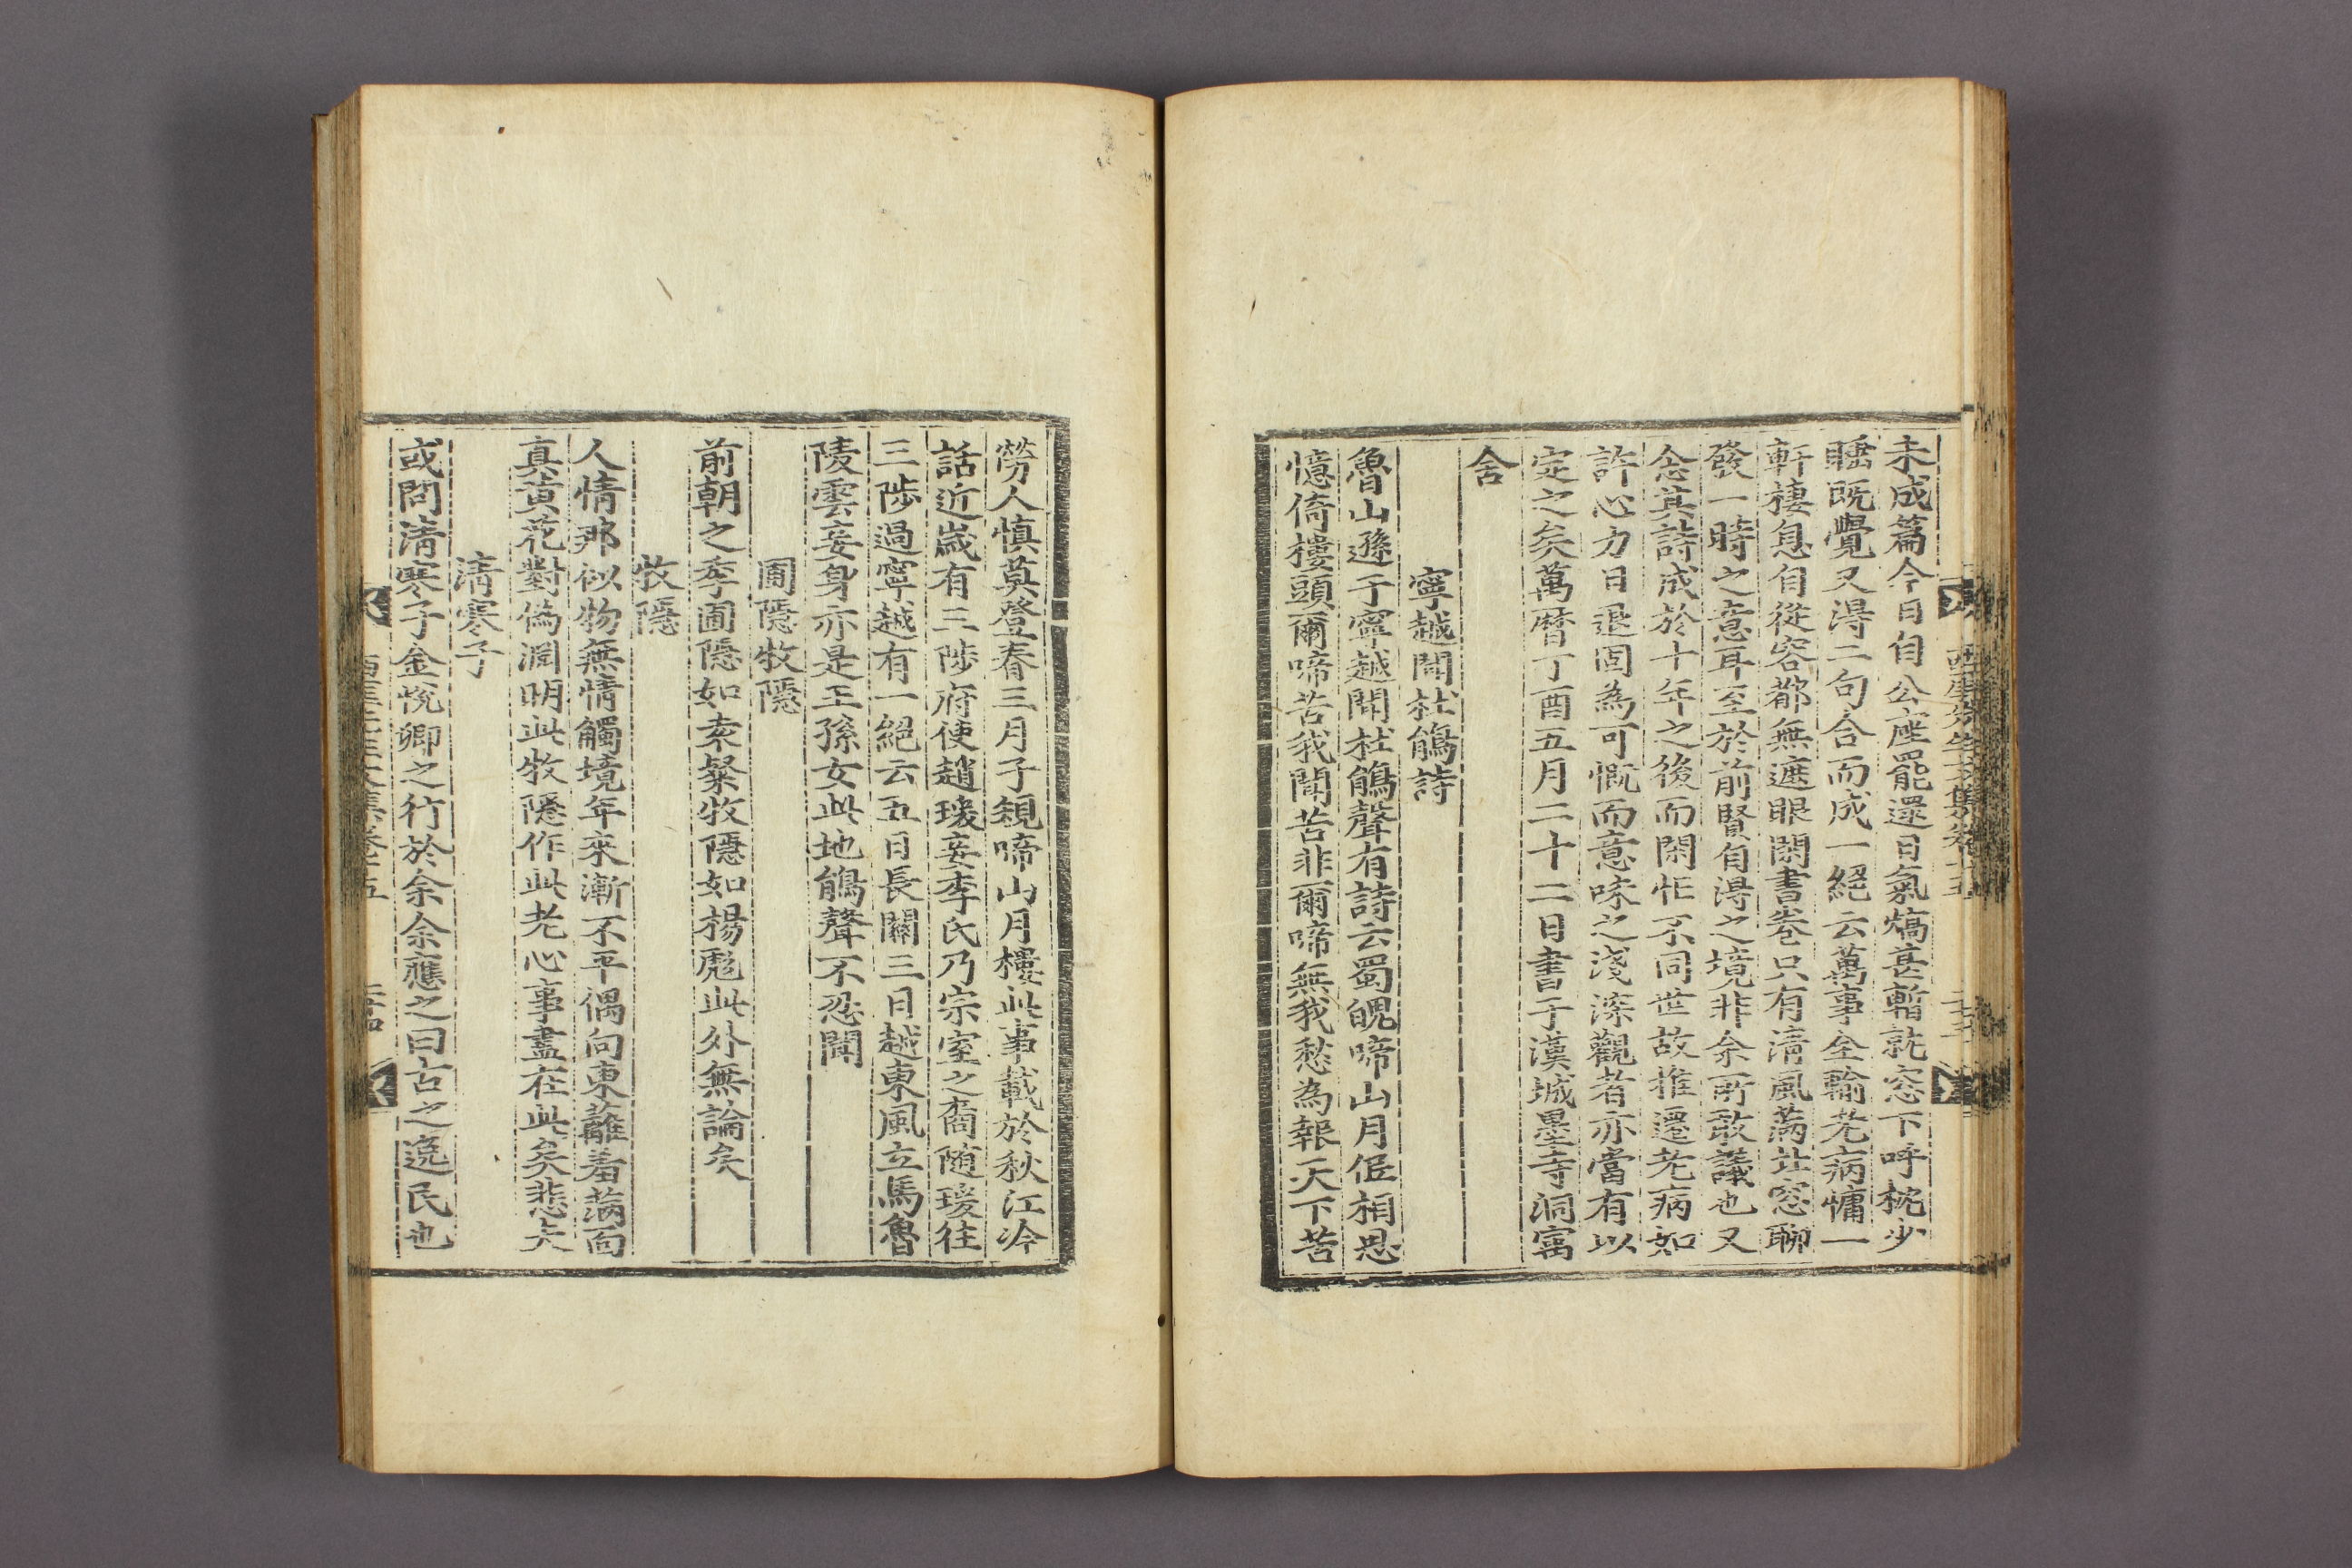 未成篇今日自公座罷還日氣熇甚暫就窓下呼枕少
睡旣覺又得二句合而成一絕云萬事全輸老病慵一
軒棲息自從容都無遮眼閑書卷只有淸風滿北窓聊
發一時之意耳至於前賢自得之境非余所敢議也又
念其詩成於十年之後而閑忙不同世故推遷老病如
許心力日退固為可慨而意味之淺深觀者亦當有以
定之矣萬曆丁酉五月二十二日書于漢城墨寺洞寓
舍
寧越聞杜鵑詩
魯山遜于寧越聞杜鵑聲有詩云蜀魄啼山月低相思
憶倚樓頭爾啼苦我聞苦非爾啼無我愁為報天下苦
勞人愼莫登春三月子規啼山月樓此事載於秋江冷
話近歲有三陟府使趙瑗妾李氏乃宗室之裔隨瑗往
三陟過寧越有一絕云五日長關三日越東風立馬魯
陵雲妾身亦是王孫女此地鵑聲不忍聞
圃隱牧隱
前朝之季圃隱如袁粲牧隱如楊彪此外無論矣
牧隱
人情那似物無情觸境年來漸不平偶向東籬羞滿面
真黃花對偽淵明此牧隱作此老心事盡在此矣悲夫
淸寒子
或問淸寒子金悅卿之行於余余應之曰古之逸民也